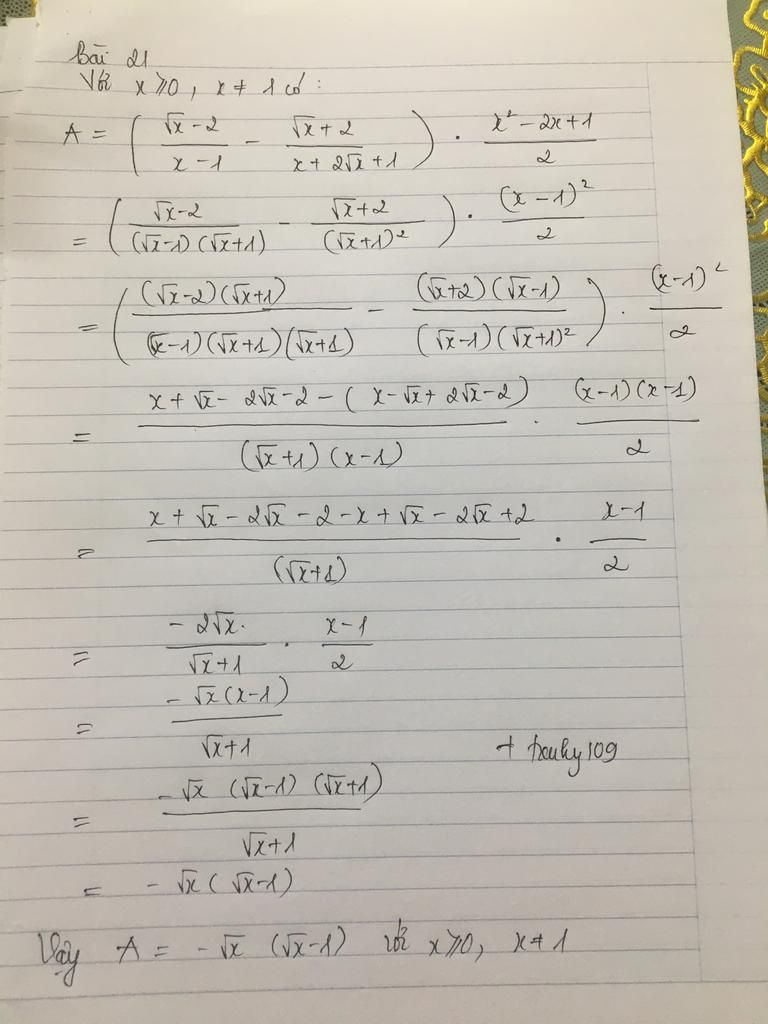 Bài 21
Với x ≥ 0, x ≠ 1 có:
A = ( (√x - 2)/(x - 1) - (√x + 2)/(x + 2√x + 1) ) · (x² - 2x + 1)/2
= ( (√x - 2)/((√x - 1)(√x + 1)) - (√x + 2)/((√x + 1)²) ) · (x - 1)²/2
= ( ((√x - 2)(√x + 1))/((√x - 1)(√x + 1)(√x + 1)) - ((√x + 2)(√x - 1))/((√x - 1)(√x + 1)²) ) · (x - 1)²/2
= (x + √x - 2√x - 2 - (x - √x + 2√x - 2))/((√x + 1)(x - 1)) · ((x - 1)(x - 1))/2
= (x + √x - 2√x - 2 - x + √x - 2√x + 2)/((√x + 1)) · (x - 1)/2
= (- 2√x)/(√x + 1) · (x - 1)/2
= (- √x(x - 1))/(√x + 1)
= (- √x (√x - 1)(√x + 1))/(√x + 1)
= - √x (√x - 1)
Vậy A = - √x (√x - 1) với x ≥ 0, x ≠ 1